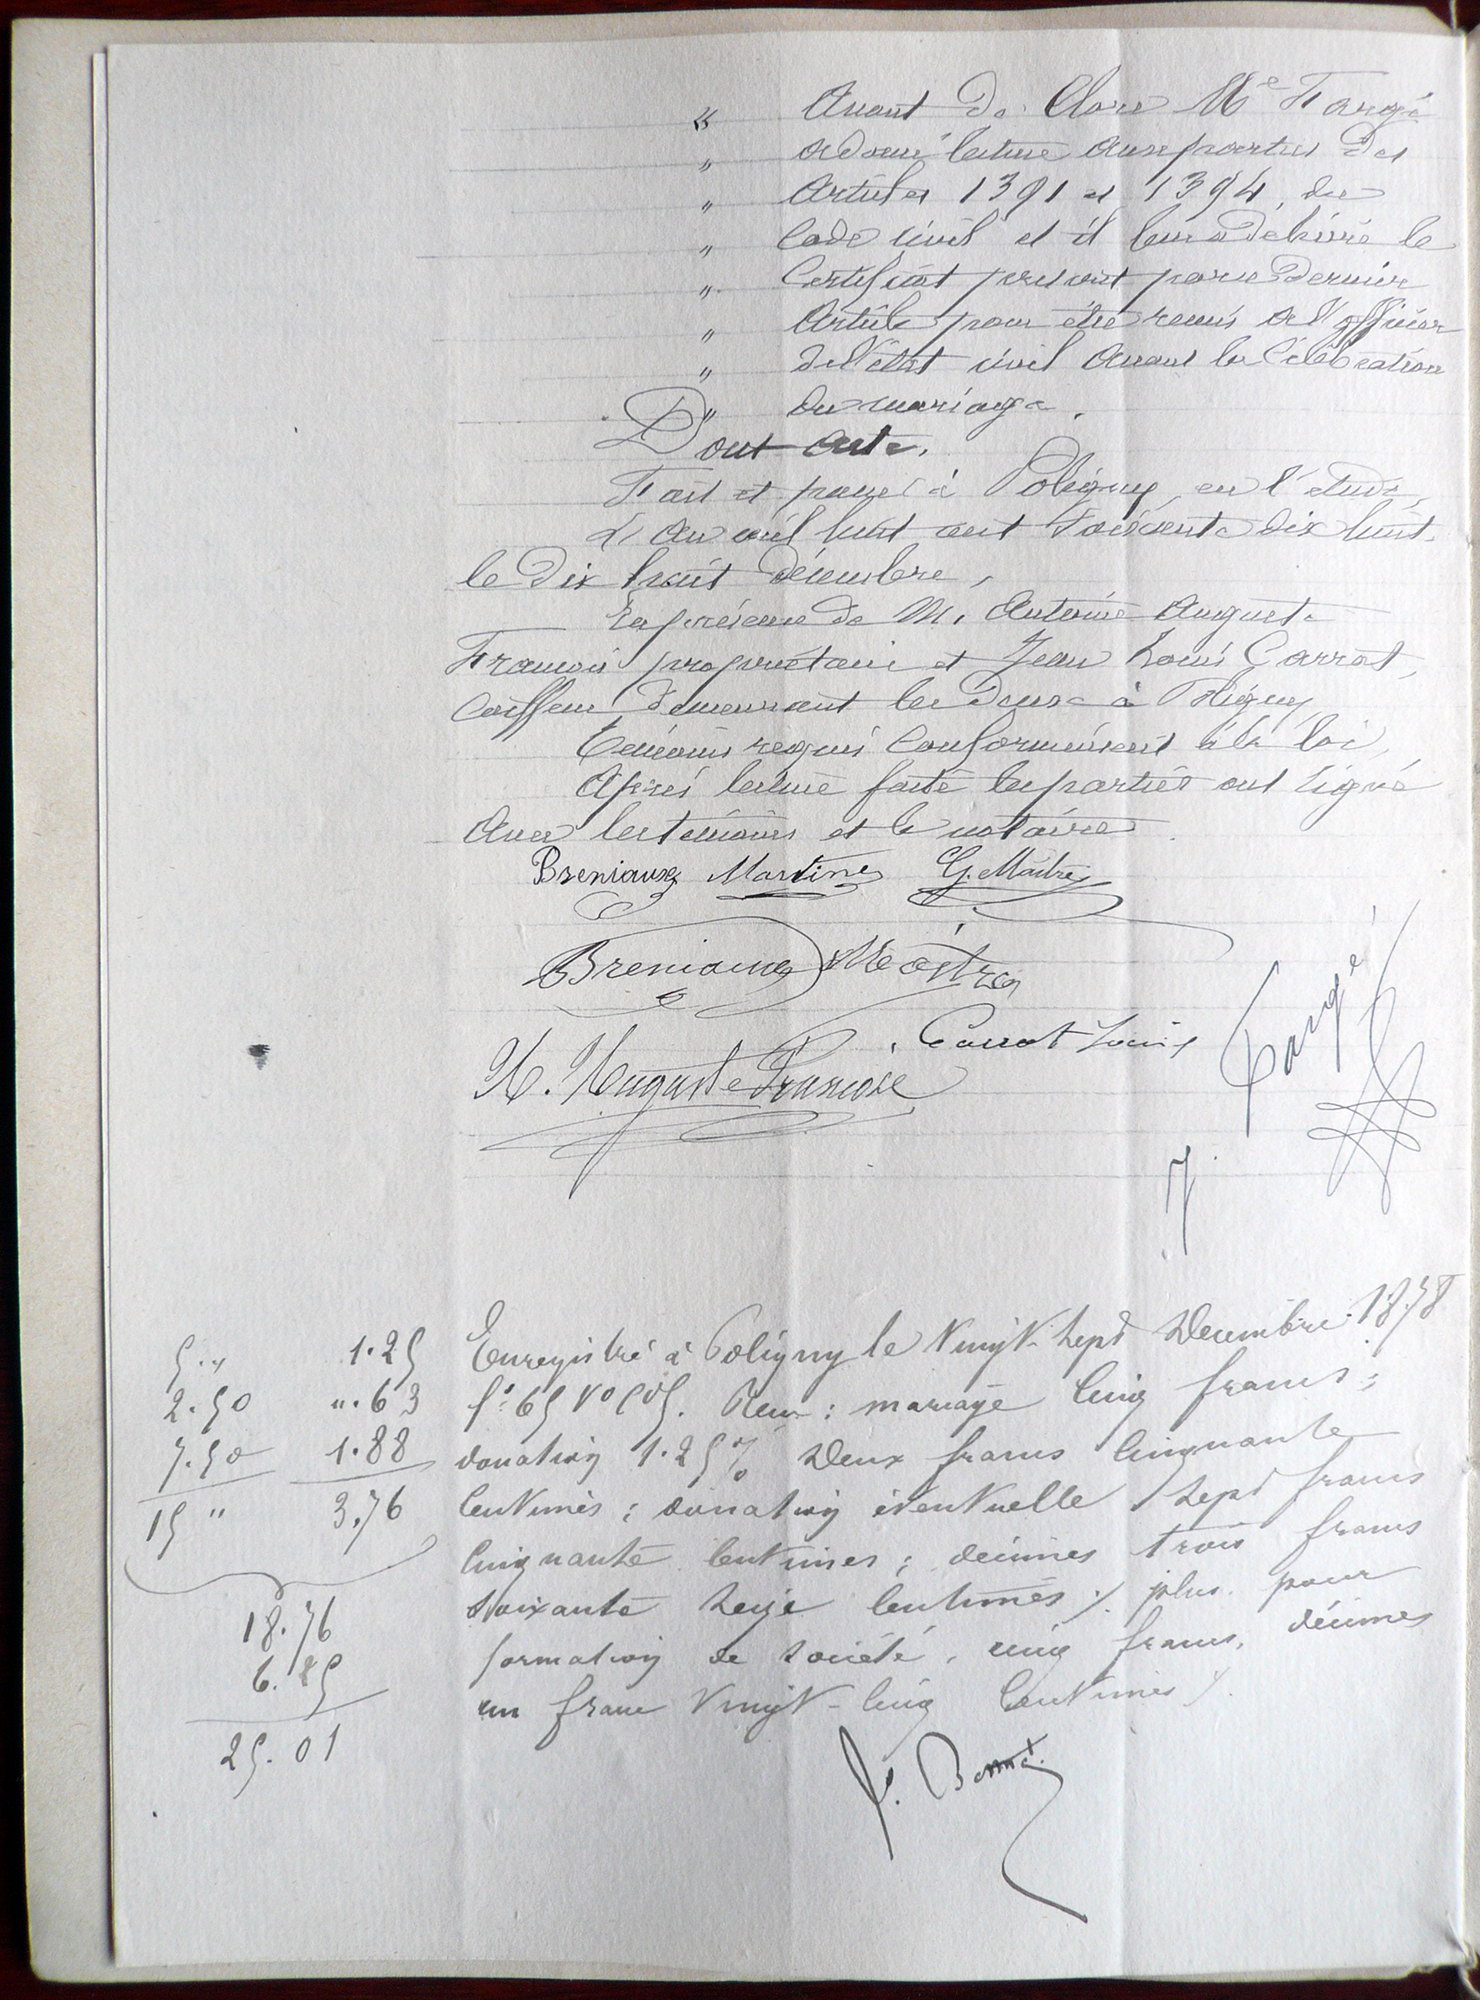 « Avant de Clore Me Fargé
" a donné lecture aux parties des
" Articles 1391 et 1394, du
" Code civil et il leur a délivré le
" Certificat prescrit par ce dernier
" Article pour être remis à l'officier
" de l'état civil avant la célébration
" du mariage.
Dont acte.
Fait et passé à Poligny, en l'étude,
L'an mil huit cent soixante dix huit,
le dix huit décembre,
En présence de M. Antoine Auguste
François propriétaire et Jean Louis Carrot,
Coiffeur demeurant les deux à Poligny,
Témoins requis conformément à la loi,
Après lecture faite les parties ont signé
Avec les témoins et le notaire
Breniaux Martine G. Maitre
Breniaux Maitre
Carrot Louis
A. Auguste François
Fargé
7
Enregistré à Poligny le Vingt-sept Décembre 1878
fo 65 Vo C. Reçu : mariage Cinq francs ;
donation 1.25 % Deux francs Cinquante
Centimes ; donation éventuelle Sept francs
Cinquante Centimes ; décimes trois francs
soixante Seize Centimes ./. plus pour
formation de société, cinq francs, décimes
un franc Vingt-Cinq Centimes ./.
5. " 1.25
2.50 ". 63
7.50 1.88
15 " 3.76
18.76
6.25
25.01